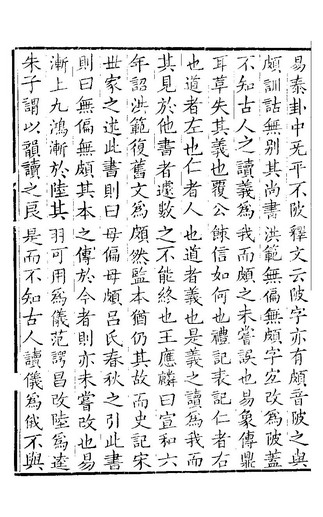 易泰卦中旡平不陂釋文云陂字亦有頗音陂之與
頗訓詁無别其尚書洪範無偏無頗字宜改爲陂蓋
不知古人之讀義爲我而頗之未嘗誤也易象傳鼎
耳革失其義也覆公餗信如何也禮記表記仁者右
也道者左也仁者人也道者義也是義之讀爲我而
其見於他書者遽數之不能終也王應麟曰宣和六
年詔洪範復舊文爲頗然監本猶仍其故而史記宋
世家之述此書則曰毋偏毋頗吕氏春秋之引此書
則曰無偏無頗其本之傳於今者則亦未嘗改也易
漸上九鴻漸於陸其羽可用爲儀范諤昌改陸爲逵
朱子謂以韻讀之良是而不知古人讀儀爲俄不與